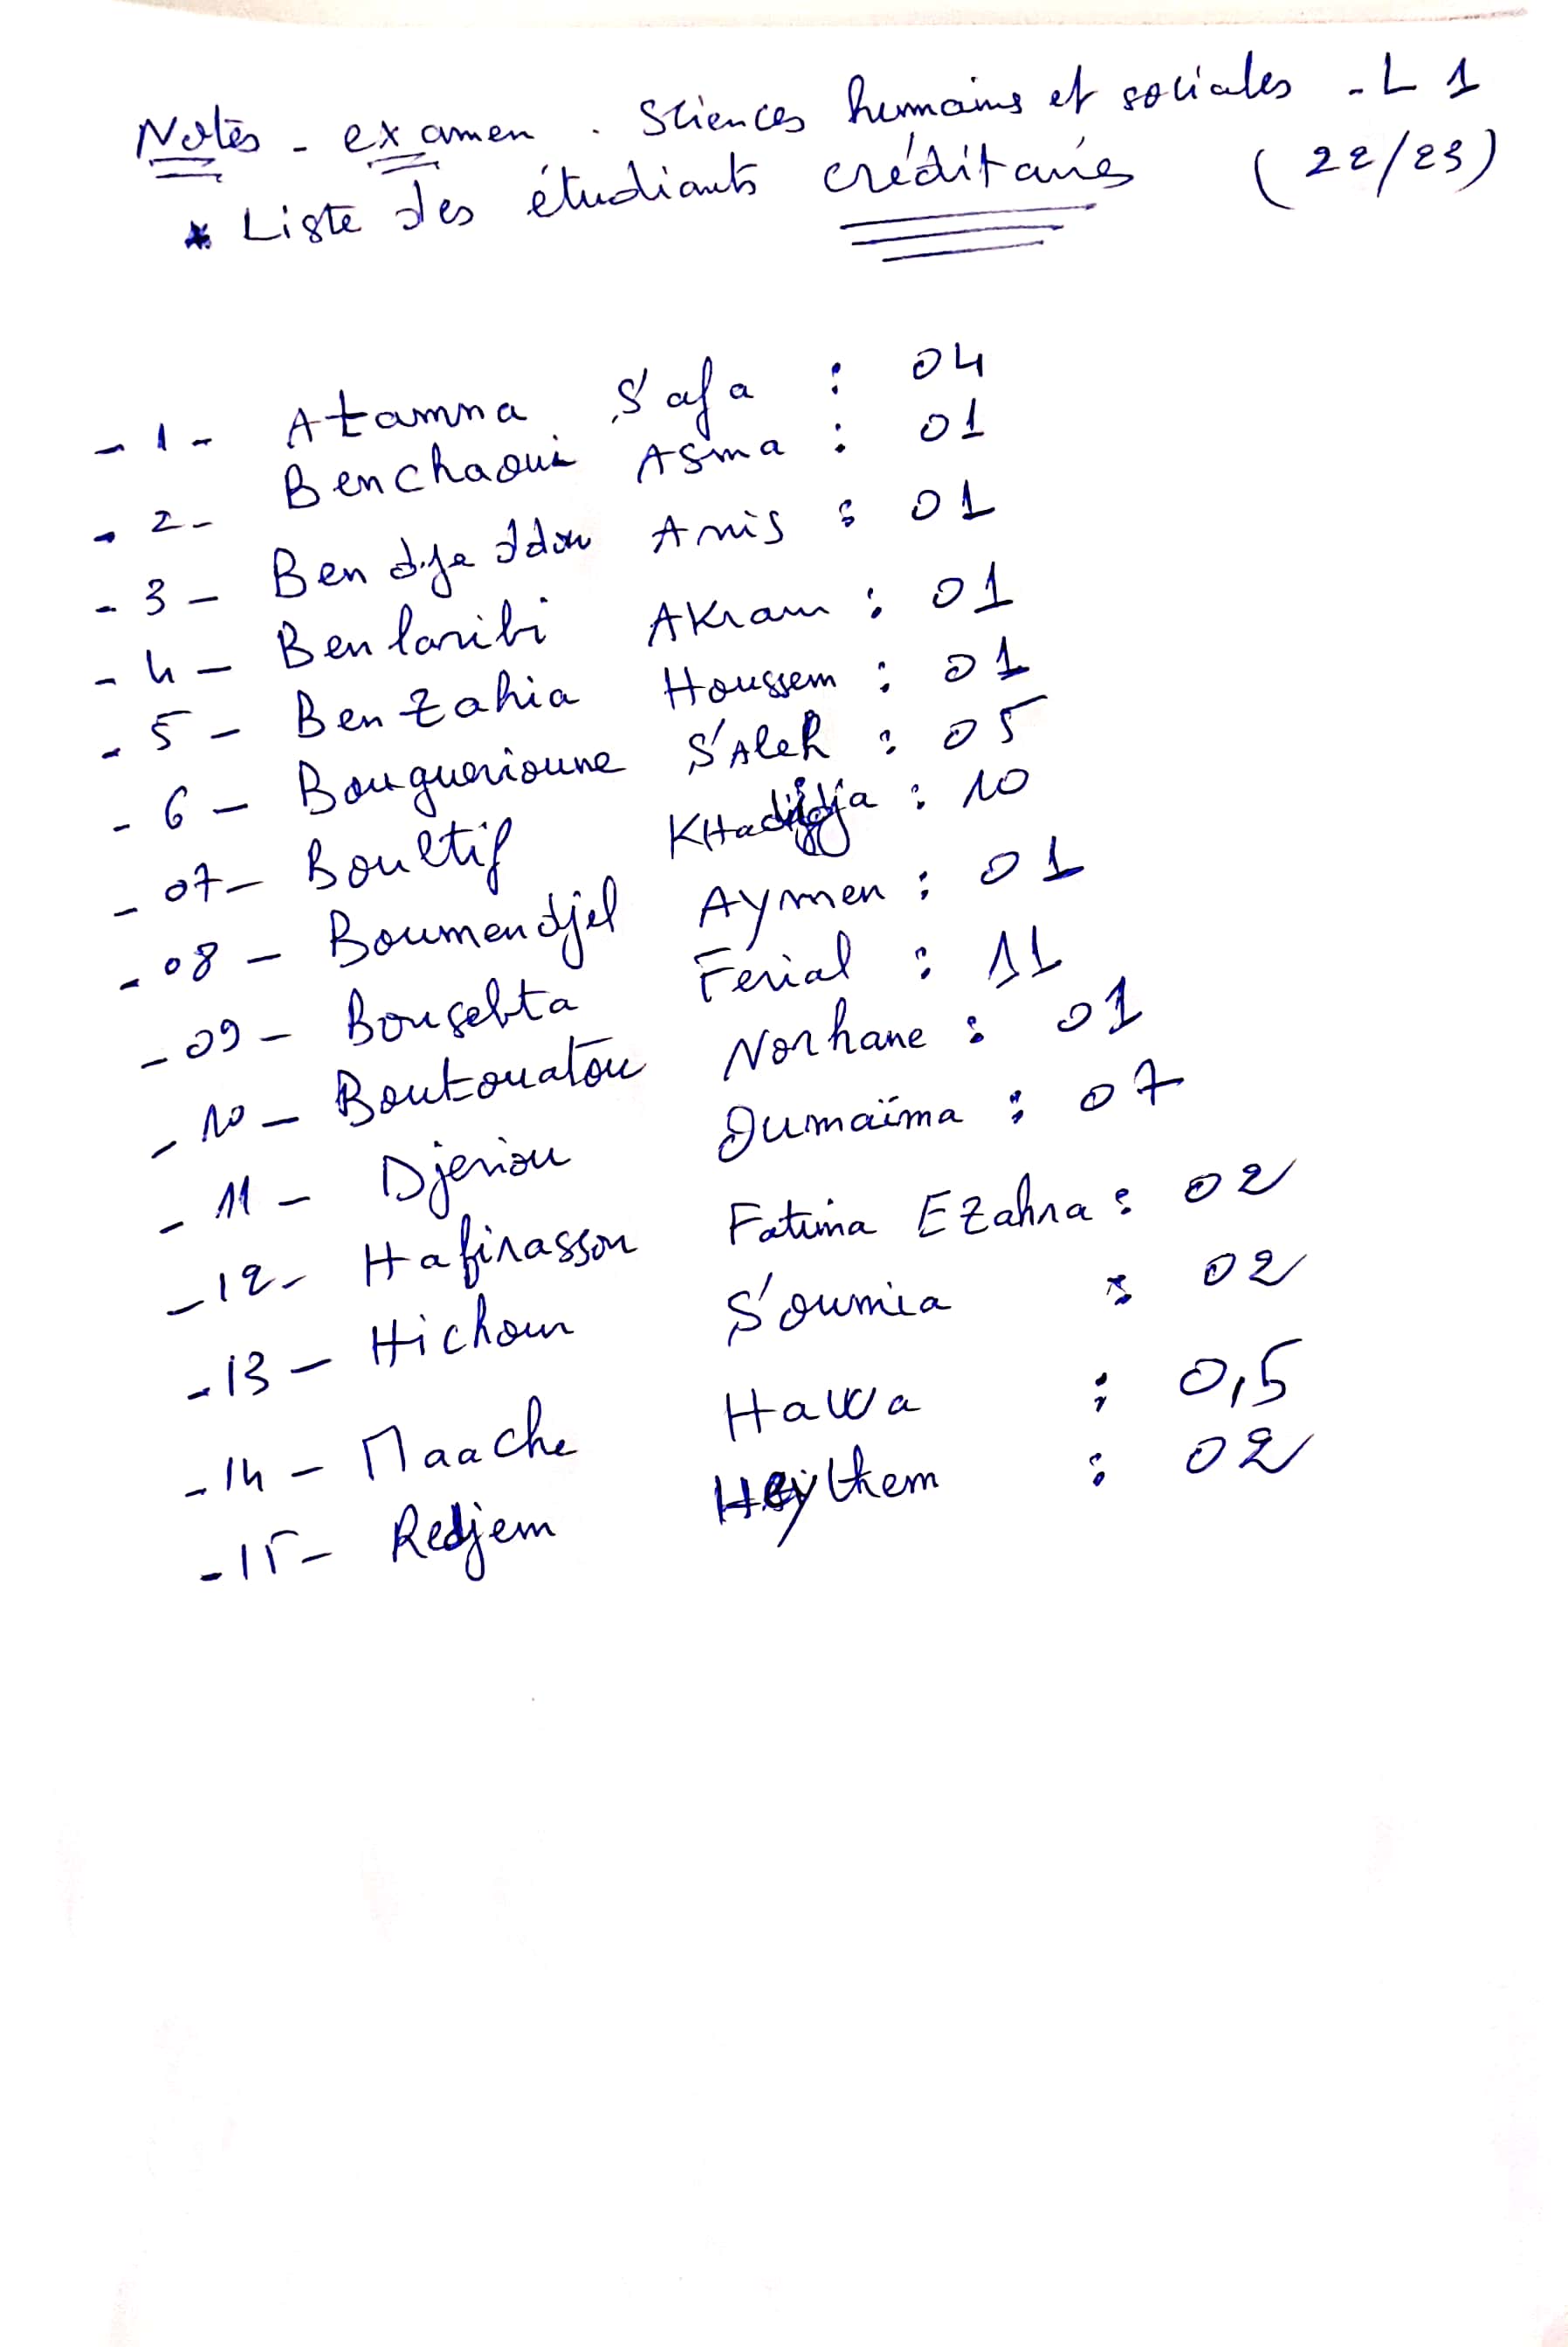 Notes - examen . Sciences humains et sociales - L 1
* Liste des étudiants créditaires (22/23)
- 1 - Atamna Safa : 04
- 2 - Benchaoui Asma : 01
- 3 - Bendjeddou Anis : 01
- 4 - Benlaribi Akram : 01
- 5 - Benzahia Houssem : 01
- 6 - Bouguerioune SAleh : 05
- 07 - Boultif KHadidja : 10
- 08 - Boumendjel Aymen : 01
- 09 - Bousebta Ferial : 11
- 10 - Boutouatou Norhane : 01
- 11 - Djeriou Oumaïma : 07
- 12 - Hafirassou Fatima EZahra : 02
- 13 - Hichour Soumia : 02
- 14 - Maache Hawa : 0,5
- 15 - Redjem Heythem : 02